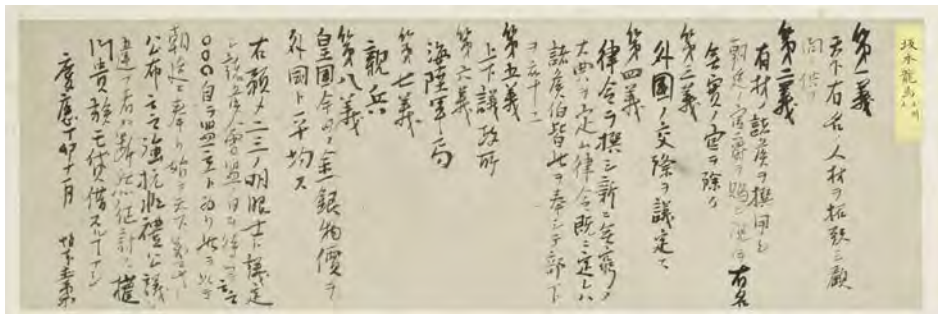 坂本龍馬
第一義
天下有名ノ人材ヲ招致シ顧
問ニ供フ
第二義
有材ノ諸侯ヲ撰用シ
朝廷ノ官爵ヲ賜ヒ現今有名
無実ノ官ヲ除ク
第三義
外国ノ交際ヲ議定ス
第四義
律令ヲ撰シ新ニ無窮ノ
大典ヲ定ム律令既ニ定レハ
諸侯伯皆此ヲ奉シテ部下
ヲ率ス
第五義
上下議政所
第六義
海陸軍局
第七義
親兵
第八義
皇国今日ノ金銀物價ヲ
外国ト平均ス
右預メ二三ノ明眼士ト議定
シ諸侯會盟ノ日ヲ待ツテ云云
○○○自ラ盟主ト為リ此ヲ以テ
朝廷ニ奉リ始テ天下萬民ニ
公布云云強抗非禮公議ニ
違フ者ハ断然征討ス權
門貴族モ貸借スルヿナシ
慶應丁卯十一月 坂本直柔